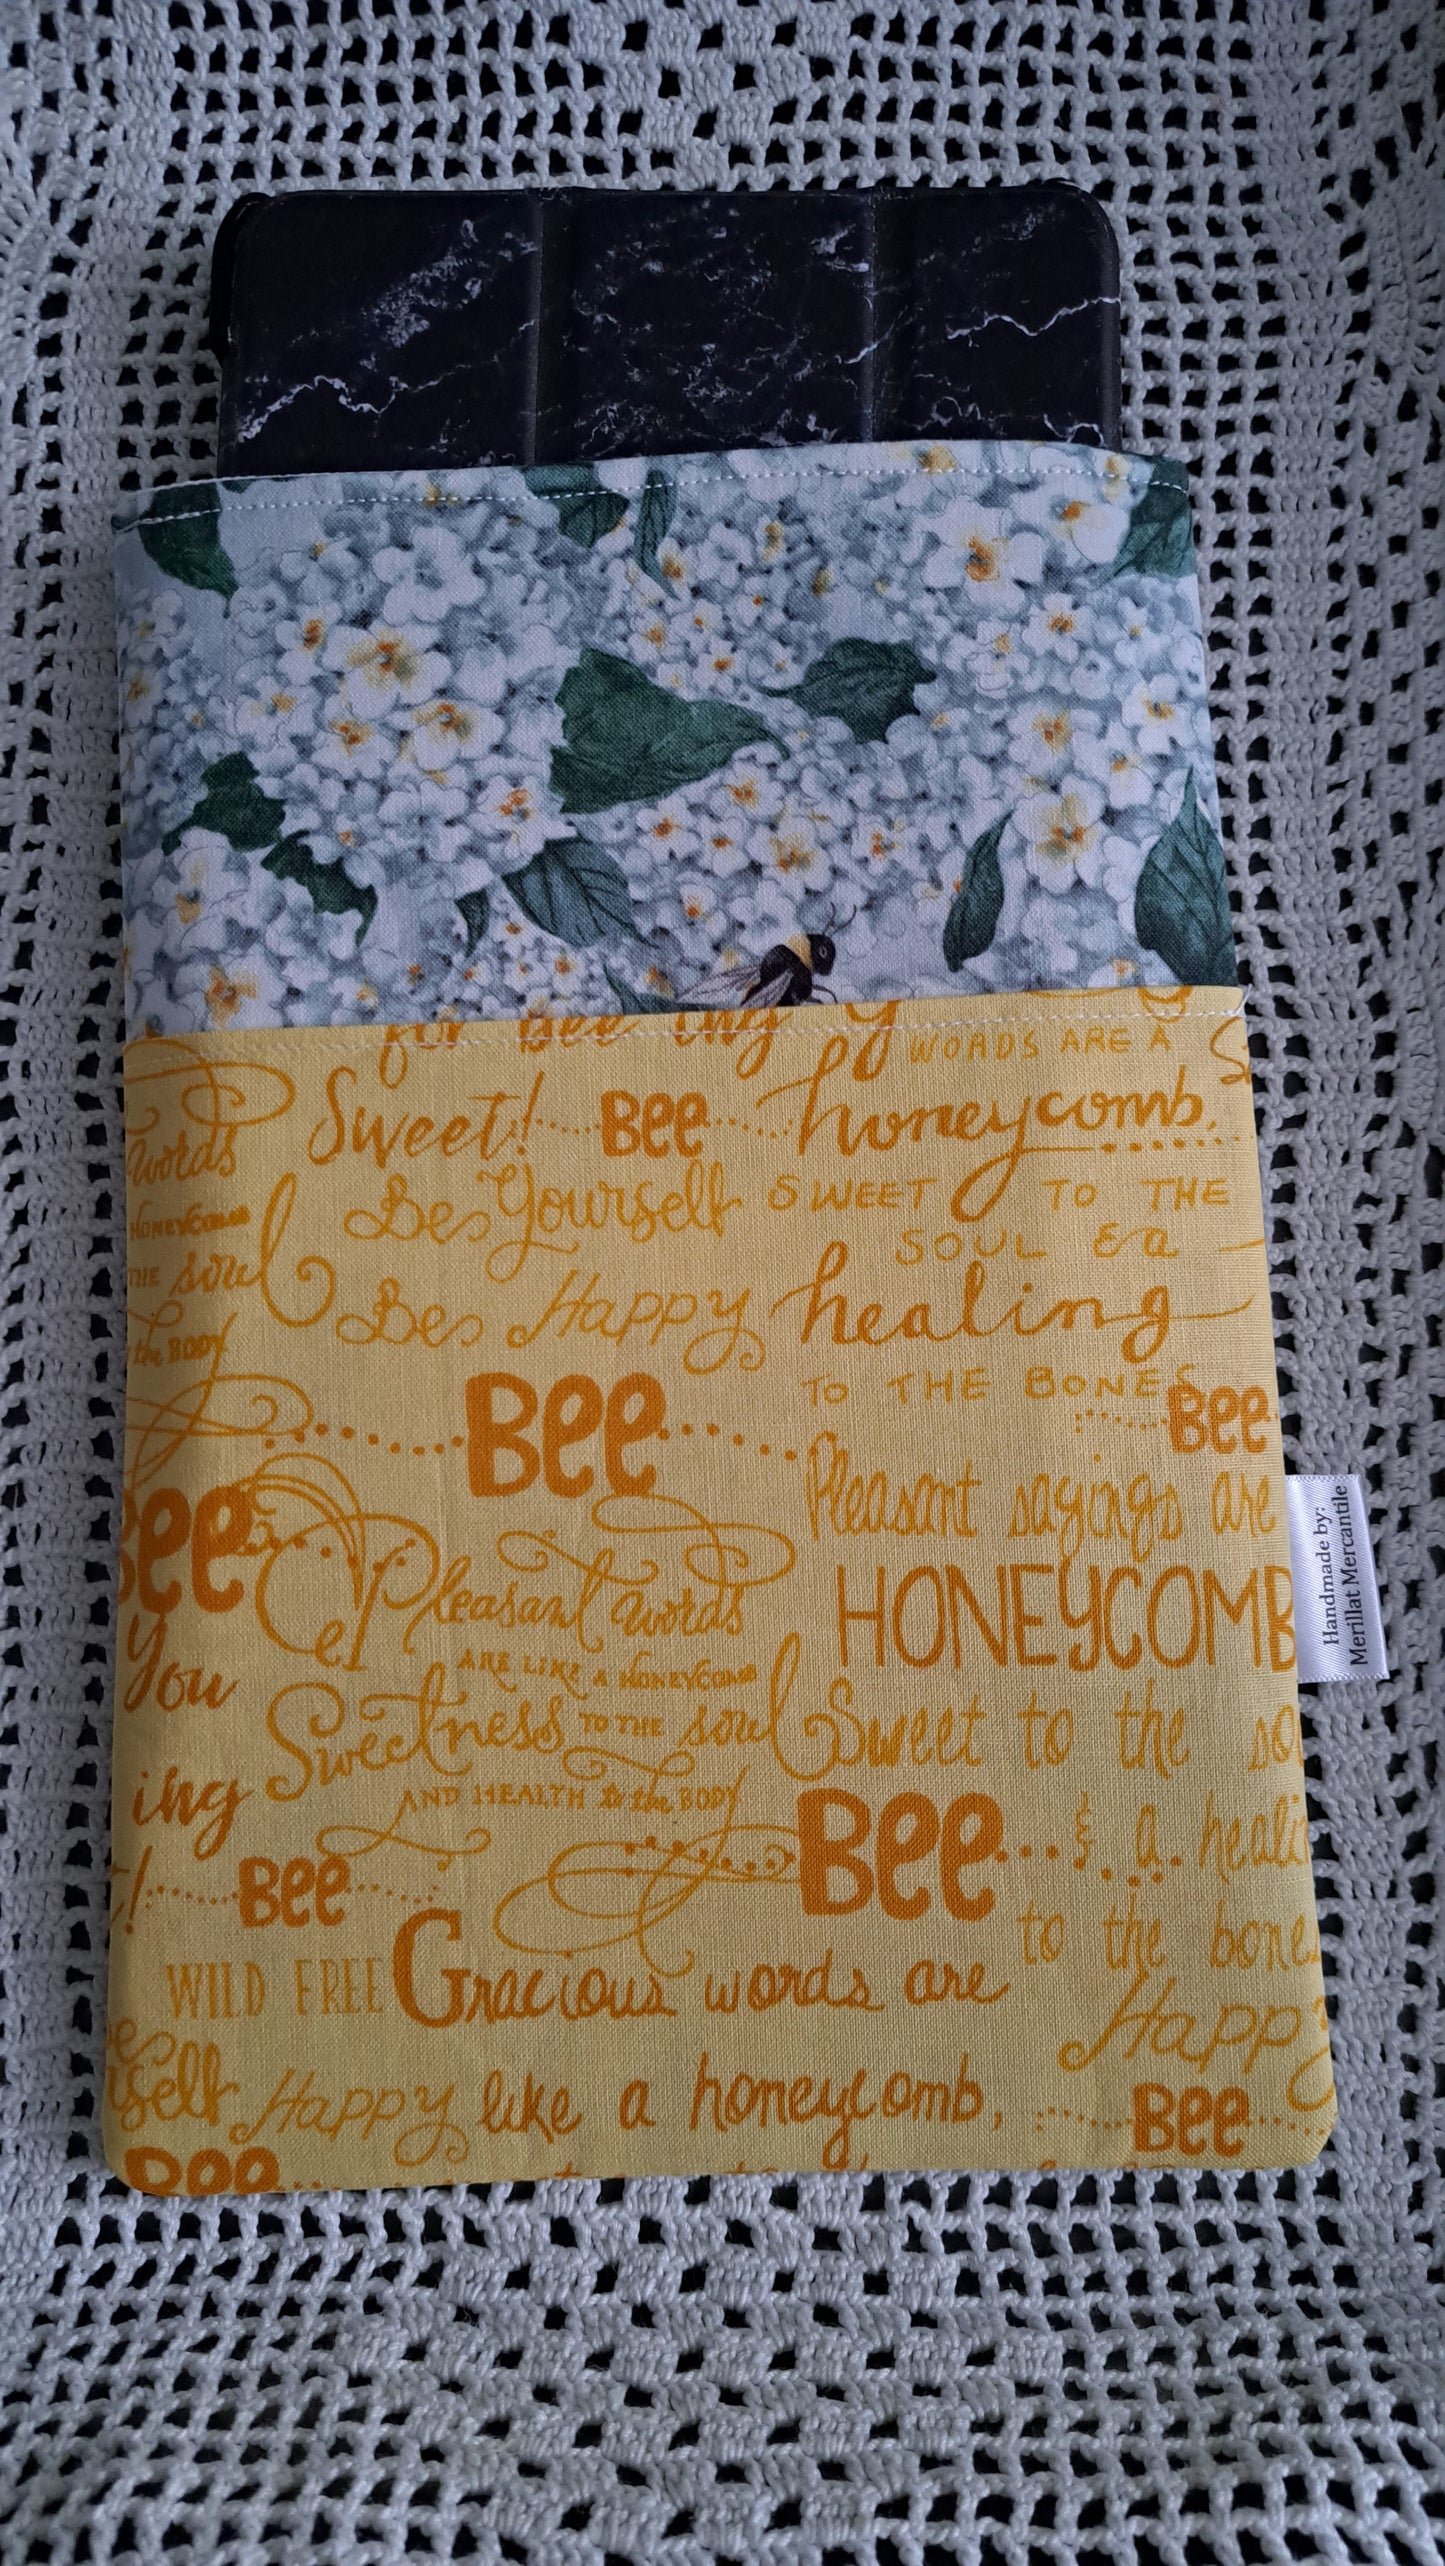 for Bee ing y
WORDS ARE A
Sweet! Bee honeycomb,
words
Be Yourself SWEET TO THE
HONEYCOMB
SOUL & a
THE soul
Be Happy healing
to the BODY
TO THE BONES
Bee Bee
Pleasant sayings are
Bee
Pleasant words HONEYCOMB
ARE LIKE A HONEYCOMB
You
Sweetness TO THE soul Sweet to the so
ing
AND HEALTH to the BODY
Bee & a heali
! Bee
to the bones
WILD FREE Gracious words are
Happy
self Happy like a honeycomb,
Bee
Bee
Handmade by:
Merillat Mercantile